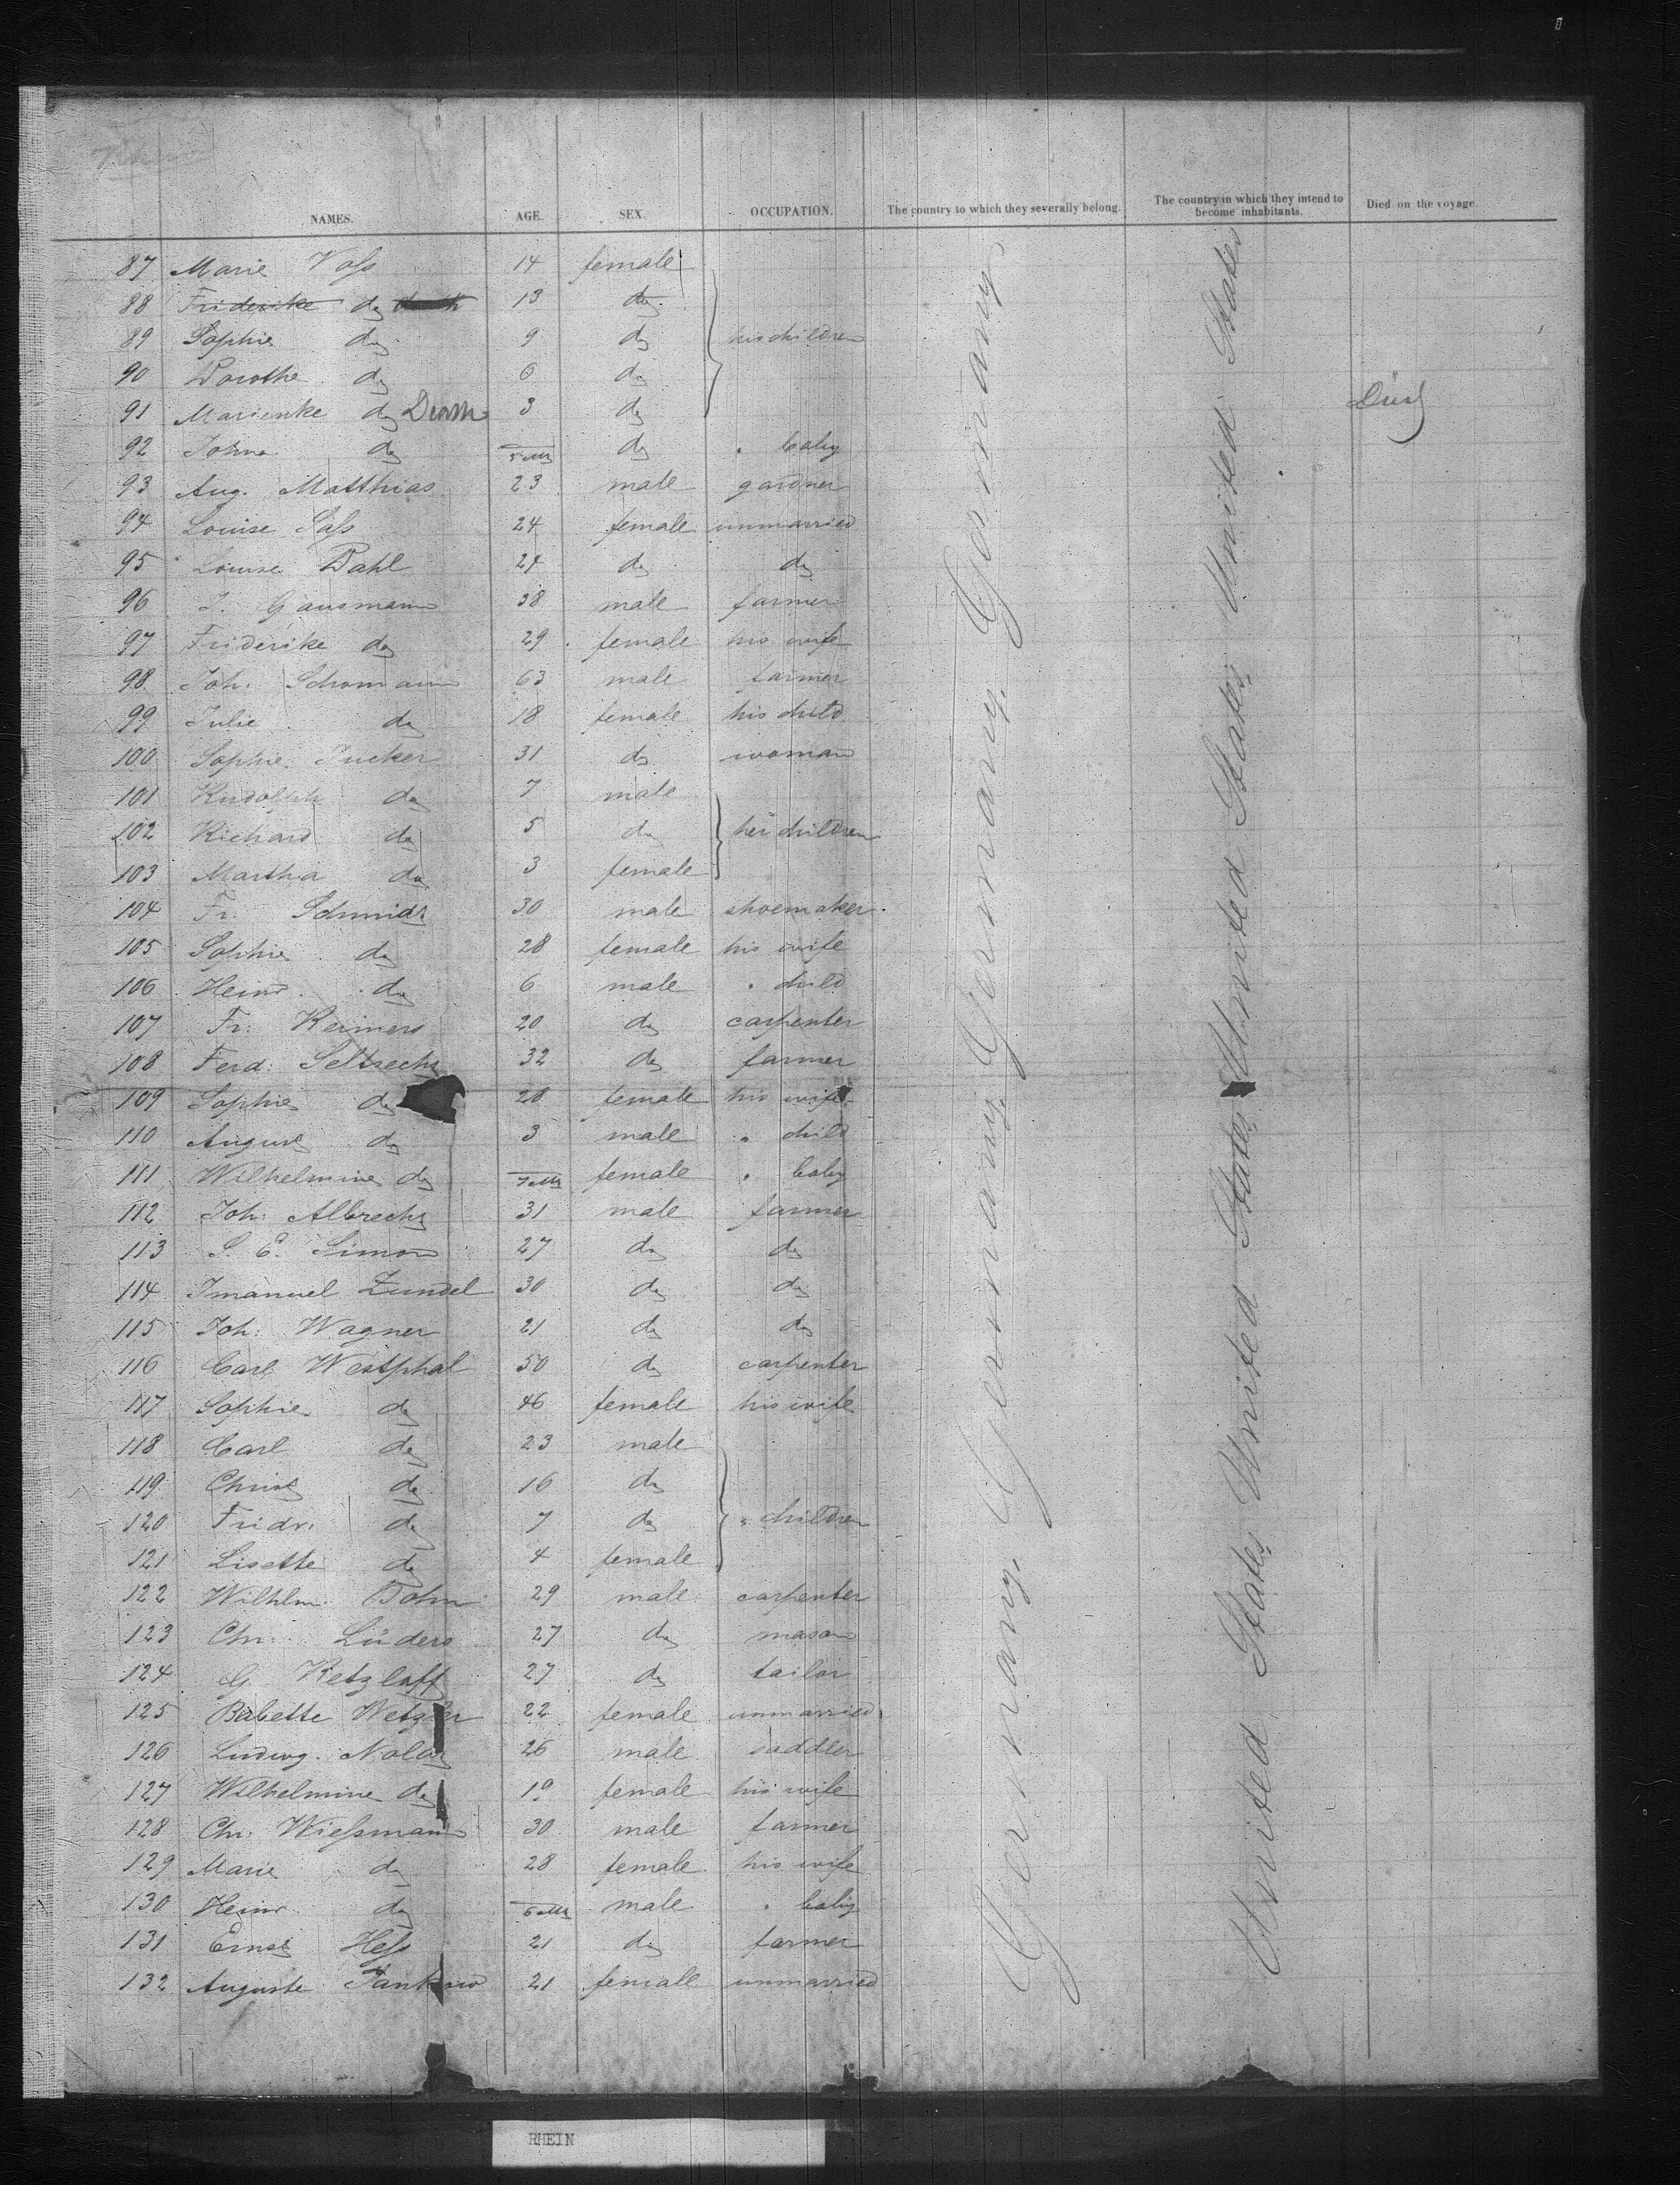 Rhein
NAMES. AGE. SEX. OCCUPATION. The country to which they severally belong. The country in which they intend to become inhabitants. Died on the voyage.
87 Marie Voss 14 female
88 Friderike do 13 do
89 Sophie do 9 do his children
90 Dorothe do 6 do
91 Marienke do Death 3 do Died
92 Johna do 5 Mts do " baby
93 Aug. Matthias 23 male gardner
94 Louise Sass 24 female unmarried
95 Louise Dahl 24 do do
96 J. Gausmann 38 male farmer
97 Friderike do 29 female his wife
98 Joh. Schomann 63 male farmer
99 Julie do 18 female his child
100 Sophie Zucker 31 do woman
101 Rudolph do 7 male
102 Richard do 5 do her children
103 Martha do 3 female
104 Fr. Schmidt 30 male shoemaker
105 Sophie do 28 female his wife
106 Heinr. do 6 male " child
107 Fr. Reimers 20 do carpenter
108 Ferd. 32 do farmer
109 Sophie do 28 female his wife
110 August do 3 male " child
111 Wilhelmine do 7 Mts female " baby
112 Joh. Albrecht 31 male farmer
113 S. E. Simon 27 do do
114 Imanuel Zundel 30 do do
115 Joh. Wagner 21 do do
116 Carl Westphal 50 do carpenter
117 Sophie do 46 female his wife
118 Carl do 23 male
119 Christ do 16 do
120 Fridr. do 7 do " children
121 Lisette do 4 female
122 Wilhlm. Bohn 29 male carpenter
123 Chr. Lüders 27 do mason
124 G. Retzlaff 27 do tailor
125 Babette Wetzler 22 female unmarried
126 Ludwg. 26 male saddler
127 Wilhelmine do 19 female his wife
128 Chr. Wiessmann 30 male farmer
129 Marie do 28 female his wife
130 Heinr. do 6 Mts male " baby
131 Ernst Hess 21 do farmer
132 Auguste 21 female unmarried
Germany. Germany. Germany. Germany
United States United States United States United States
RHEIN